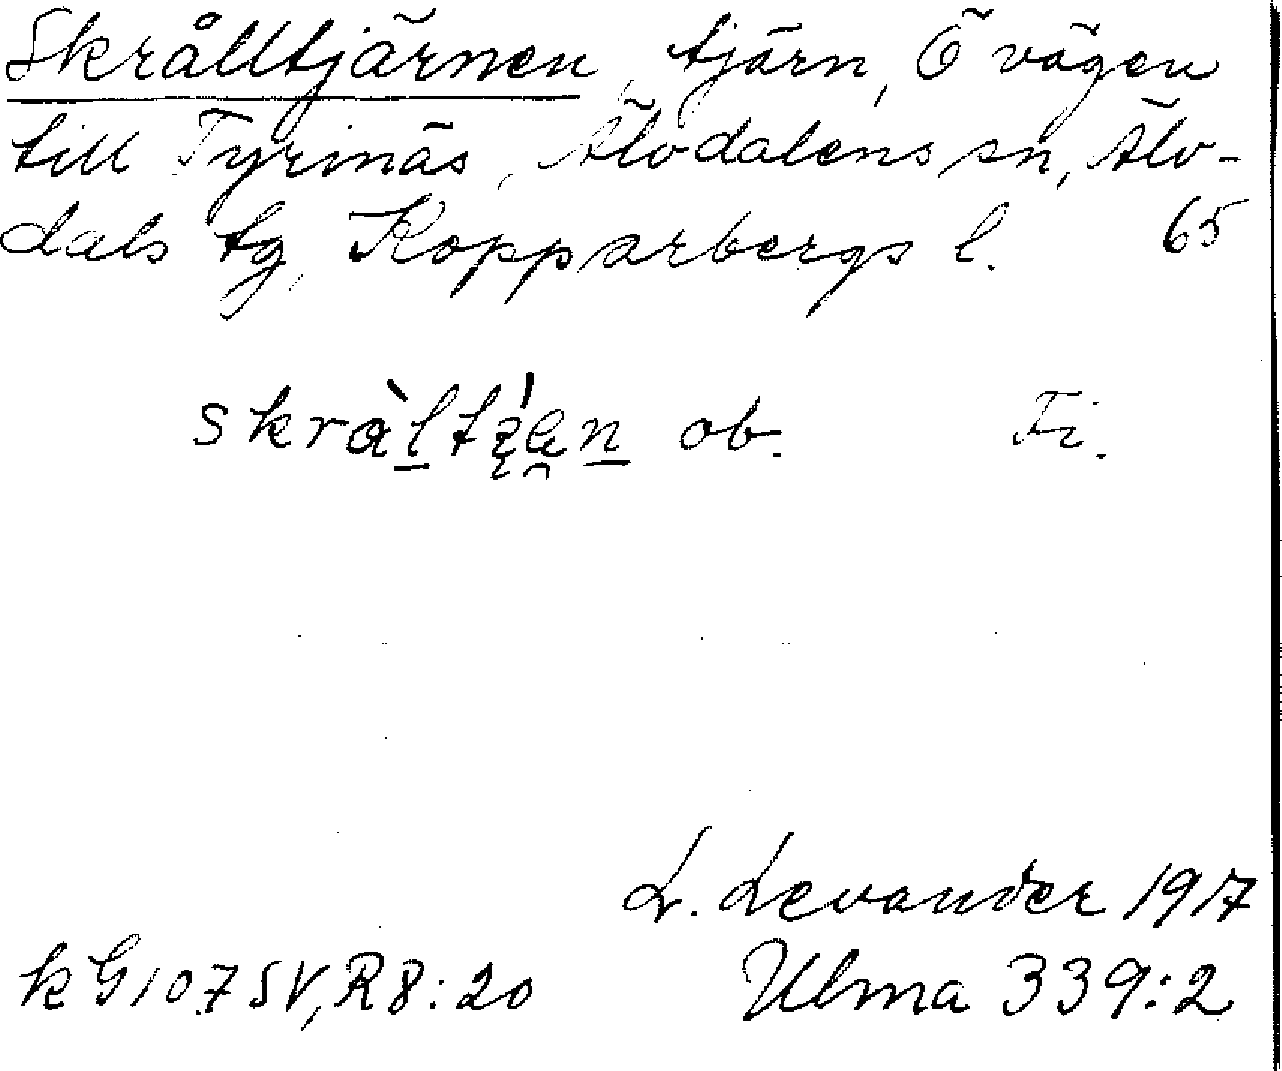 Skrålltjärnen, tjärn, Ö vägen
till Tyrinäs, Älvdalens sn, Älv-
dals tg, Kopparbergs l. 65
ob. Fi.
L. Levander 1917
kG107SV,R8:20 Ulma 339:2